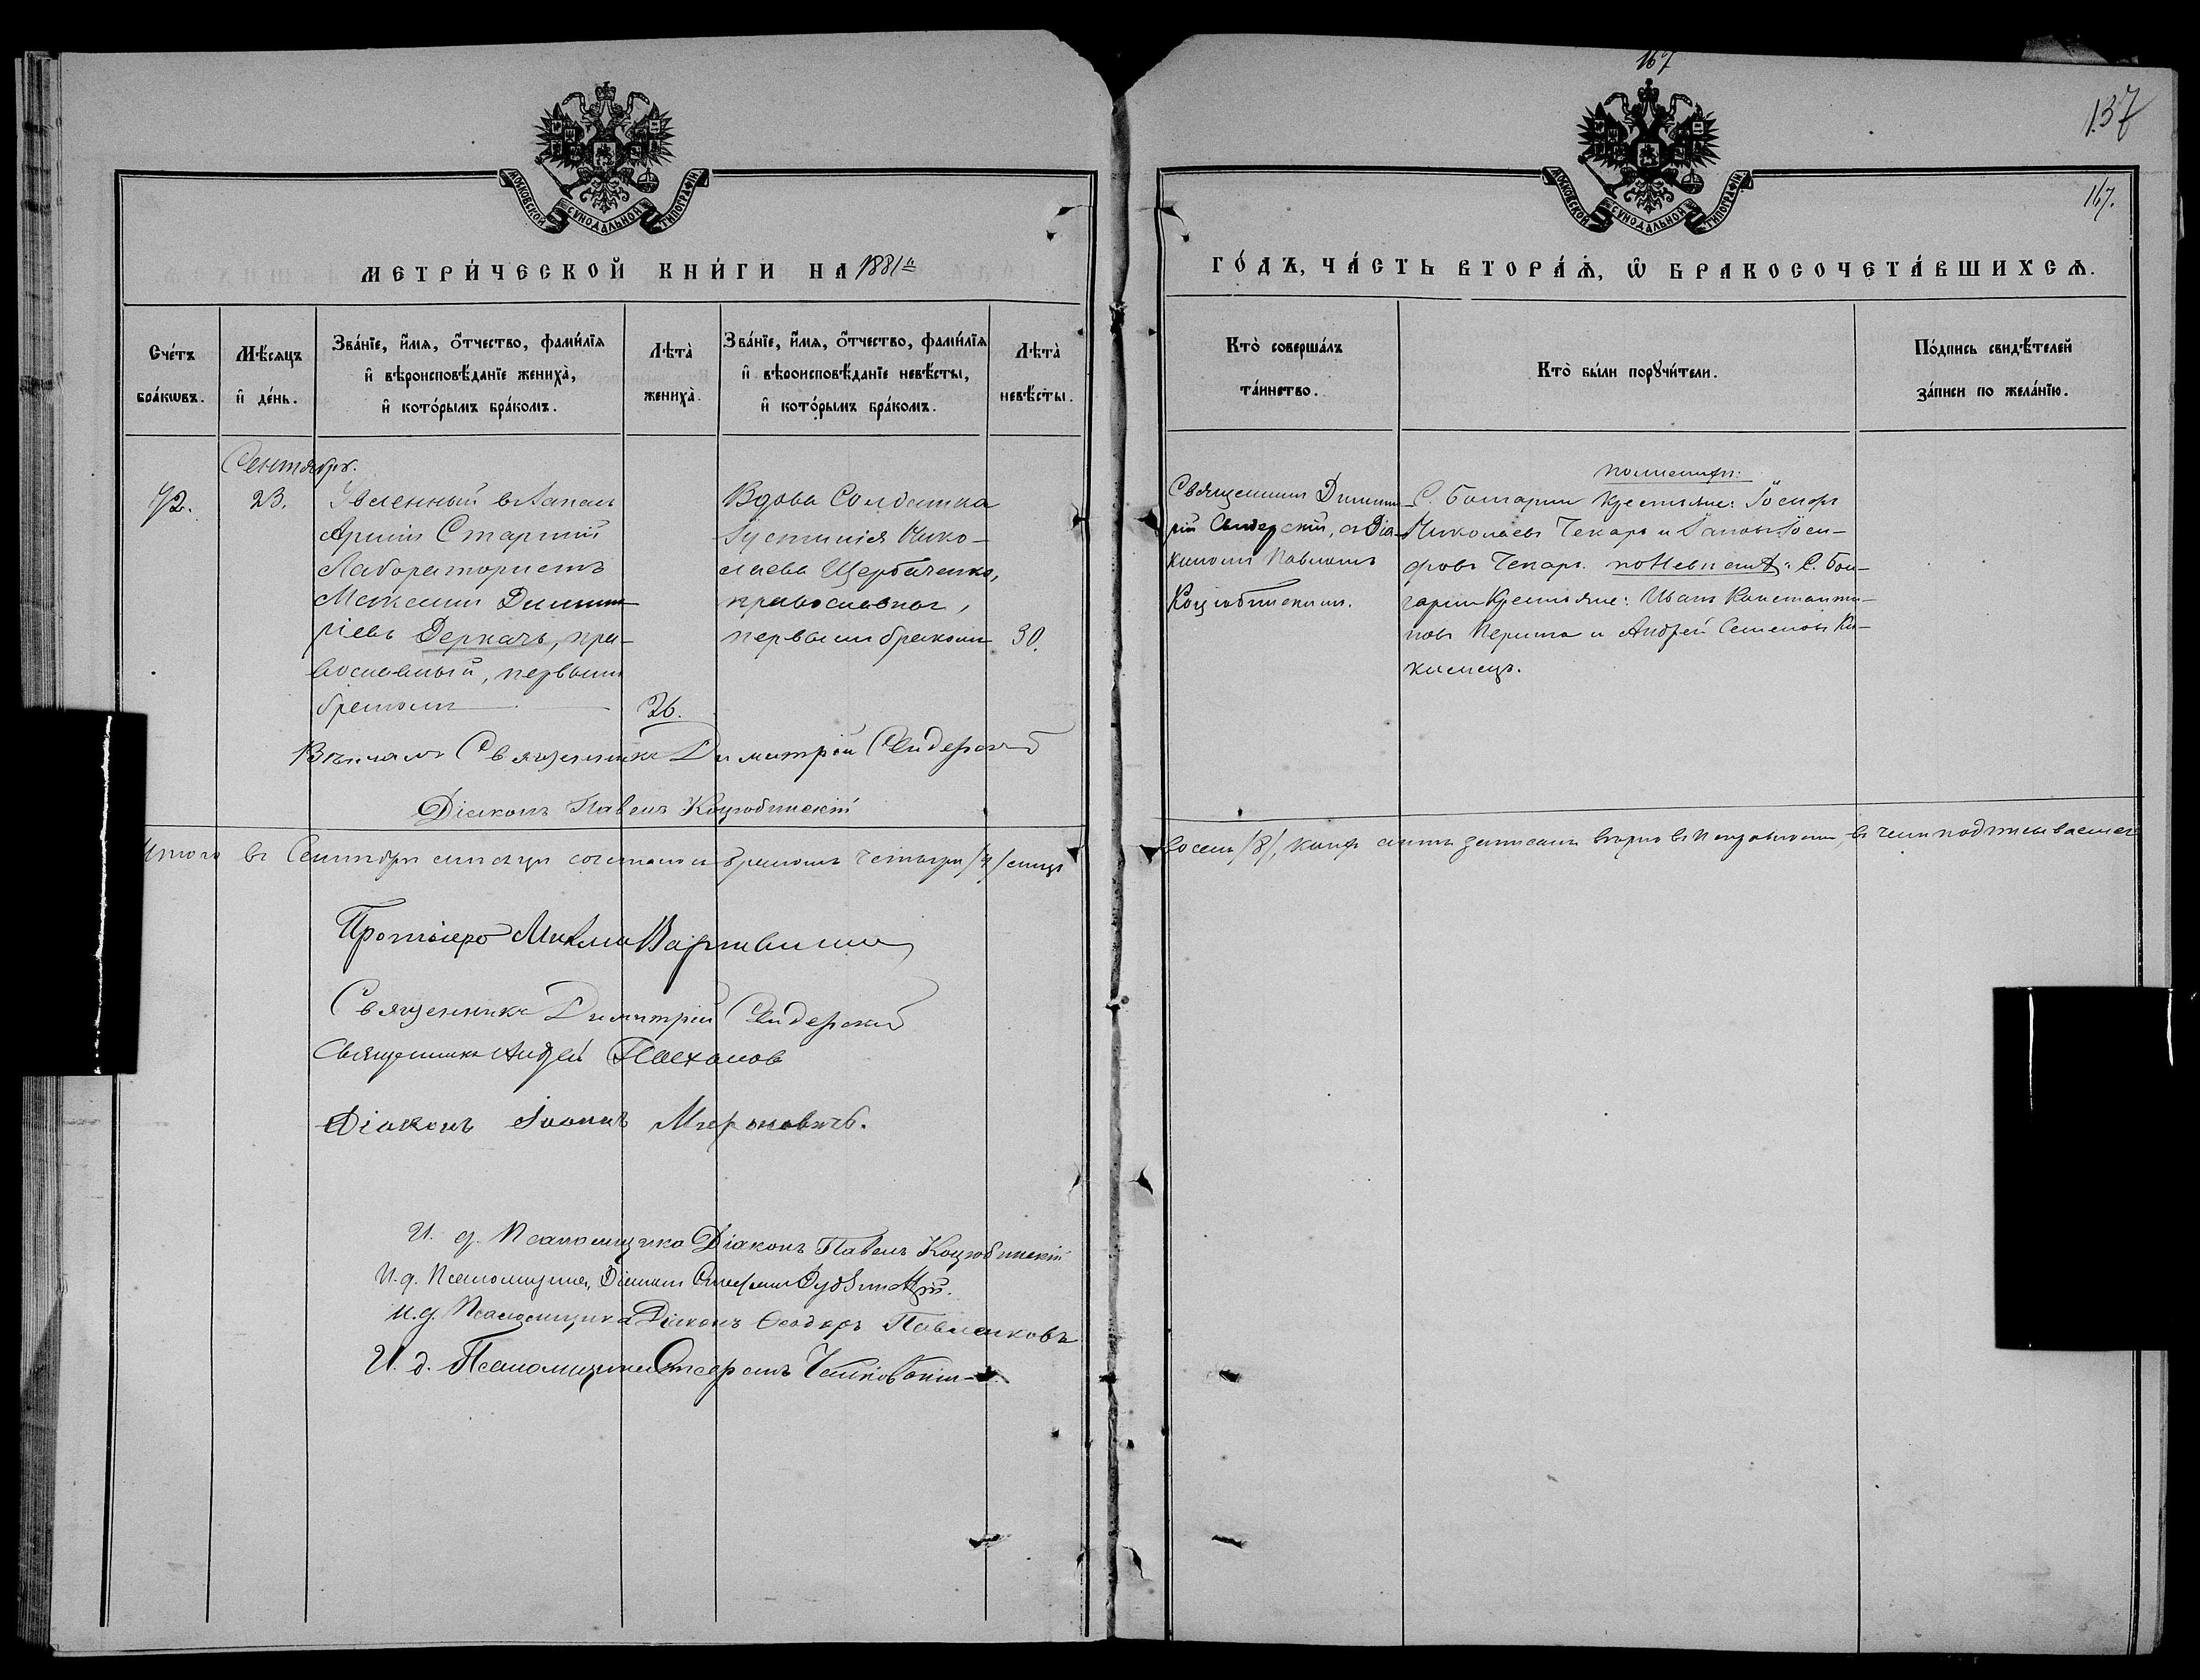 167
137
167.
МОСКОВСКОЙ СУНОДАЛЬНОЙ ТИПОГРАФІИ
МОСКОВСКОЙ СУНОДАЛЬНОЙ ТИПОГРАФІИ
МЕТРИ́ЧЕСКОЙ КНИ́ГИ НА 1881й
ГО́ДЪ, ЧА́СТЬ ВТОРА́Ѧ, Ѡ БРАКОСОЧЕТА́ВШИХСѦ.
Сче́тъ бра́кѡвъ.
Мѣ́сяцъ и҆ де́нь.
Зва́нїе, и҆́мя, ѻ҆́тчество, фами́лїя
и҆ вѣроисповѣ́данїе жениха̀,
и҆ кото́рымъ бра́комъ.
Лѣта̀ жениха̀.
Зва́нїе, и҆́мя, ѻ҆́тчество, фами́лїя
и҆ вѣроисповѣ́данїе невѣ́сты,
и҆ кото́рымъ бра́комъ.
Лѣта̀ невѣ́сты.
Кто̀ соверша́лъ
та́инство.
Кто̀ бы́ли порꙋчи́тели.
По́дпись свидѣ́телей
за́писи по жела́нїю.
Сентябрь.
72.
23.
Уволенный въ Запасъ
Арміи Старшій
Лаборатористъ
Максимъ Димит-
ріевъ Деркачъ, пра-
вославный, первымъ
бракомъ
26.
Вдова Солдатка
Іустинія Нико-
лаева Щербаченко,
православная,
первымъ бракомъ
30.
Священникъ Димит-
рій Сидерскій, съ Діа-
кономъ Павломъ
Коцюбинскимъ.
по женихѣ:
С. Болгарки крестьяне: Іосифъ
Николаевъ Чекаръ и Іоси-
фовъ Чекаръ. по Невѣстѣ: С. Бол-
гарки Крестьяне: Иванъ Константи-
новъ и Андрей Семеновъ
Вѣнчалъ Священникъ Димитрій Сидерскій
Діаконъ Павелъ Коцюбинскій
Итого въ Сентябрѣ мѣсяцѣ сочеталось бракомъ четыре /4/ лицъ
восемь /8/, актъ записанъ вѣрно въ чемъ подписываемся
Протоіерей
Священникъ Димитрій Сидерскій
Священникъ Андрей
Діаконъ Іоаннъ Мироновичъ.
И. д. Псаломщика Діаконъ Павелъ Коцюбинскій
И. д. Псаломщика, Діаконъ Стефанъ
И. д. Псаломщика Діаконъ Ѳеодоръ Павленковъ
И. д. Псаломщика Стефанъ